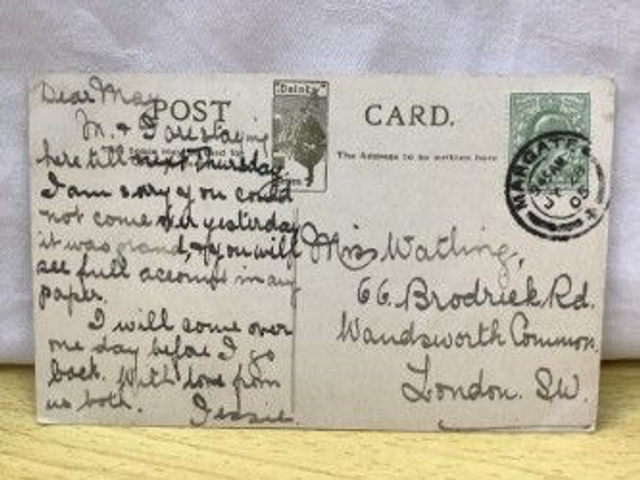 Dear May
POST
"Dainty"
CARD.
M. & I are staying
here till next Thursday.
The Address to be written here
I am sorry you could
not come over yesterday
it was grand, & you will
see full account in any
paper.
I will come over
one day before I go
back. With love from
us both. Jessie.
MARGATE
JY
05
Miss Watling,
66. Brodrick Rd.
Wandsworth Common.
London. SW.